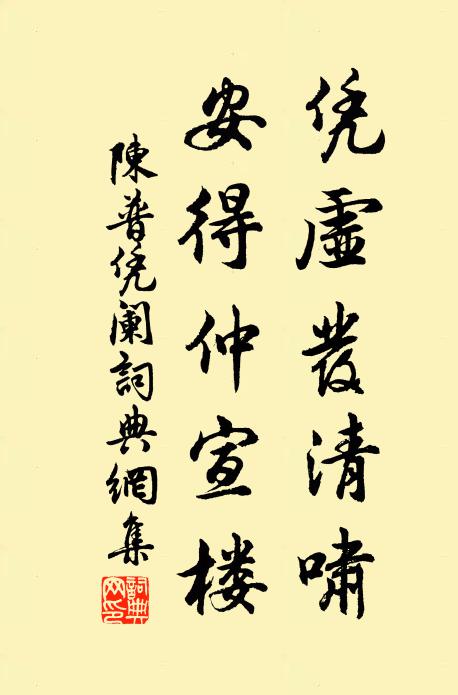 凭虛發清嘯
安得仲宣楼
陳普凭阑詞典網集
詞典网印